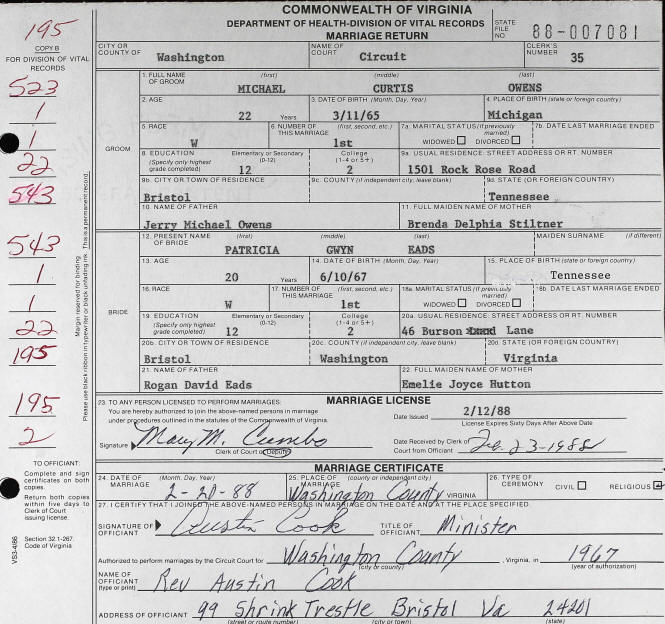 COMMONWEALTH OF VIRGINIA
DEPARTMENT OF HEALTH-DIVISION OF VITAL RECORDS
MARRIAGE RETURN
STATE FILE NO 88-007081
195
COPY B
FOR DIVISION OF VITAL RECORDS
523
1
1
22
543
543
1
1
22
195
195
2
CITY OR COUNTY OF Washington NAME OF COURT Circuit CLERK'S NUMBER 35
GROOM
1. FULL NAME OF GROOM (first) (middle) (last)
MICHAEL CURTIS OWENS
2. AGE 3. DATE OF BIRTH (Month, Day, Year) 4. PLACE OF BIRTH (state or foreign country)
22 Years 3/11/65 Michigan
5. RACE 6. NUMBER OF THIS MARRIAGE (first, second, etc.) 7a. MARITAL STATUS (If previously married) 7b. DATE LAST MARRIAGE ENDED
W 1st WIDOWED DIVORCED
8. EDUCATION (Specify only highest grade completed) Elementary or Secondary (0-12) College (1-4 or 5+) 9a. USUAL RESIDENCE: STREET ADDRESS OR RT. NUMBER
12 2 1501 Rock Rose Road
9b. CITY OR TOWN OF RESIDENCE 9c. COUNTY (if independent city, leave blank) 9d. STATE (OR FOREIGN COUNTRY)
Bristol Tennessee
10. NAME OF FATHER 11. FULL MAIDEN NAME OF MOTHER
Jerry Michael Owens Brenda Delphia Stiltner
BRIDE
12. PRESENT NAME OF BRIDE (first) (middle) (last) MAIDEN SURNAME (if different)
PATRICIA GWYN EADS
13. AGE 14. DATE OF BIRTH (Month, Day, Year) 15. PLACE OF BIRTH (state or foreign country)
20 Years 6/10/67 Tennessee
16. RACE 17. NUMBER OF THIS MARRIAGE (first, second, etc.) 18a. MARITAL STATUS (If previously married) 18b. DATE LAST MARRIAGE ENDED
W 1st WIDOWED DIVORCED
19. EDUCATION (Specify only highest grade completed) Elementary or Secondary (0-12) College (1-4 or 5+) 20a. USUAL RESIDENCE: STREET ADDRESS OR RT. NUMBER
12 2 46 Burson Lane
20b. CITY OR TOWN OF RESIDENCE 20c. COUNTY (if independent city, leave blank) 20d. STATE (OR FOREIGN COUNTRY)
Bristol Washington Virginia
21. NAME OF FATHER 22. FULL MAIDEN NAME OF MOTHER
Rogan David Eads Emelie Joyce Hutton
MARRIAGE LICENSE
23. TO ANY PERSON LICENSED TO PERFORM MARRIAGES:
You are hereby authorized to join the above-named persons in marriage
under procedures outlined in the statutes of the Commonwealth of Virginia.
Date Issued 2/12/88
License Expires Sixty Days After Above Date
Signature Mary M. Cumbo
Clerk of Court or Deputy
Date Received by Clerk of Court from Officiant Feb. 23-1988
MARRIAGE CERTIFICATE
24. DATE OF MARRIAGE (Month, Day, Year) 25. PLACE OF MARRIAGE (county or independent city) 26. TYPE OF CEREMONY CIVIL RELIGIOUS
2-20-88 Washington County VIRGINIA
27. I CERTIFY THAT I JOINED THE ABOVE-NAMED PERSONS IN MARRIAGE ON THE DATE AND AT THE PLACE SPECIFIED
SIGNATURE OF OFFICIANT Austin Cook TITLE OF OFFICIANT Minister
Authorized to perform marriages by the Circuit Court for Washington County, Virginia, in 1967
(city or county) (year of authorization)
NAME OF OFFICIANT (type or print) Rev Austin Cook
ADDRESS OF OFFICIANT 99 Shrink Trestle Bristol Va 24201
(street or route number) (city or town) (state)
Margin reserved for binding
Please use black ribbon in typewriter or black unfading ink. This is a permanent record.
TO OFFICIANT:
Complete and sign certificates on both copies.
Return both copies within five days to Clerk of Court issuing license.
Section 32.1-267. Code of Virginia
VS3-4/86